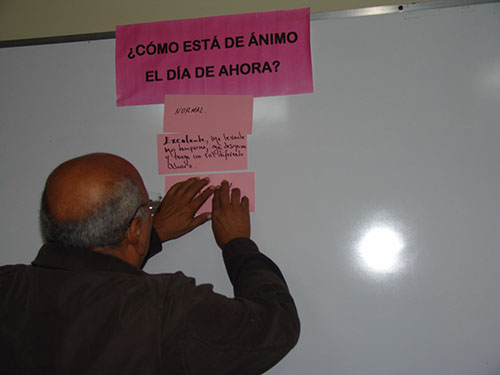 ¿CÓMO ESTÁ DE ÁNIMO
EL DÍA DE AHORA?
NORMAL.
Excelente, me levante
muy temprano, me desayune
y tengo un